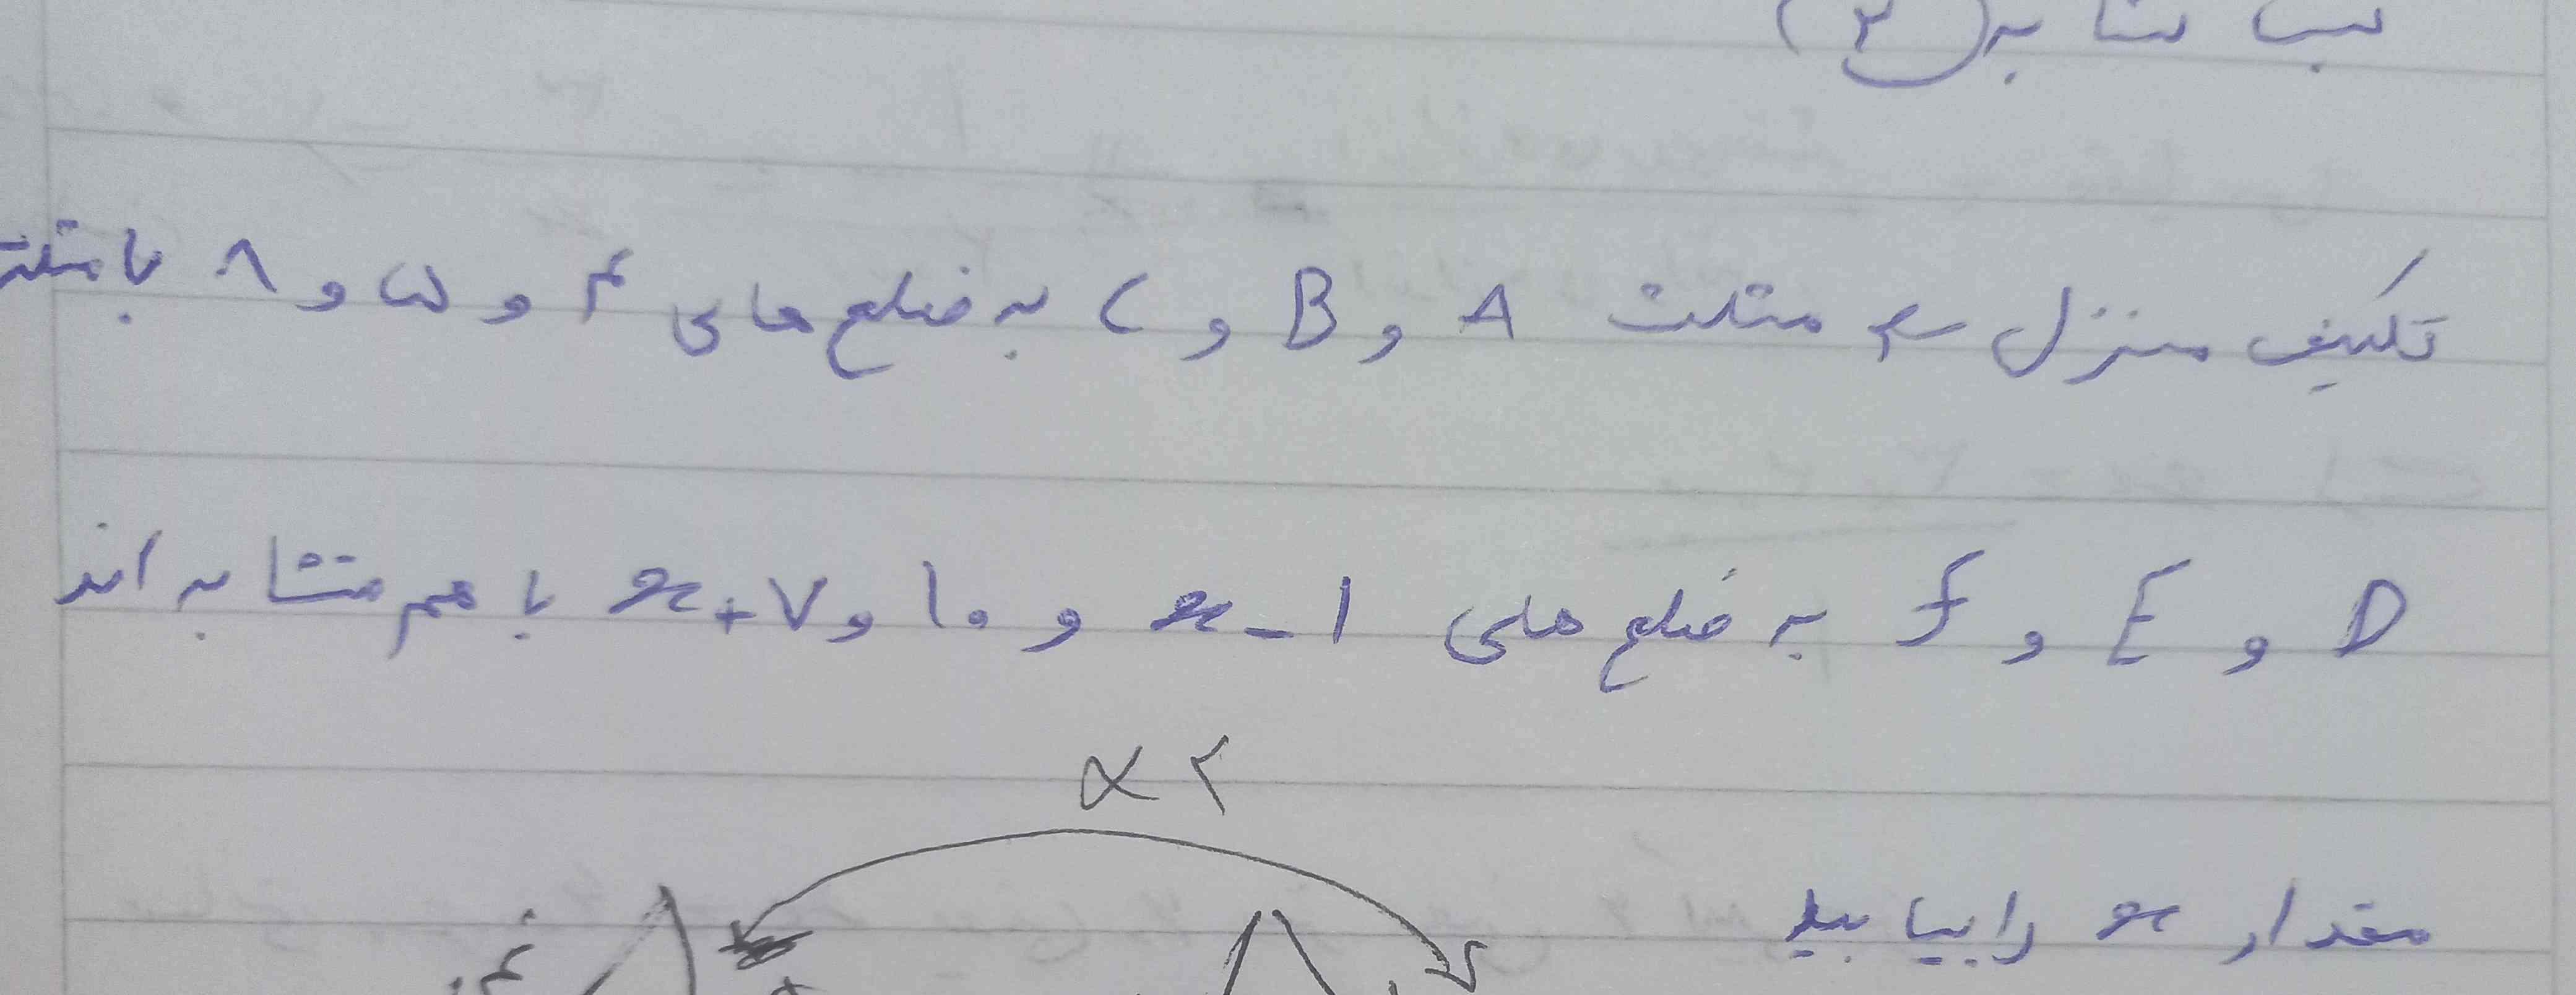 تشابه (۲)
تکلیف منزل مثلث A و B و C به ضلع های ۴ و ۵ و ۸ با مثلث
D و E و f به ضلع های x-۱ و ۱۰ و x+۷ با هم متشابه اند
x۲
مقدار x را بیابید
۴